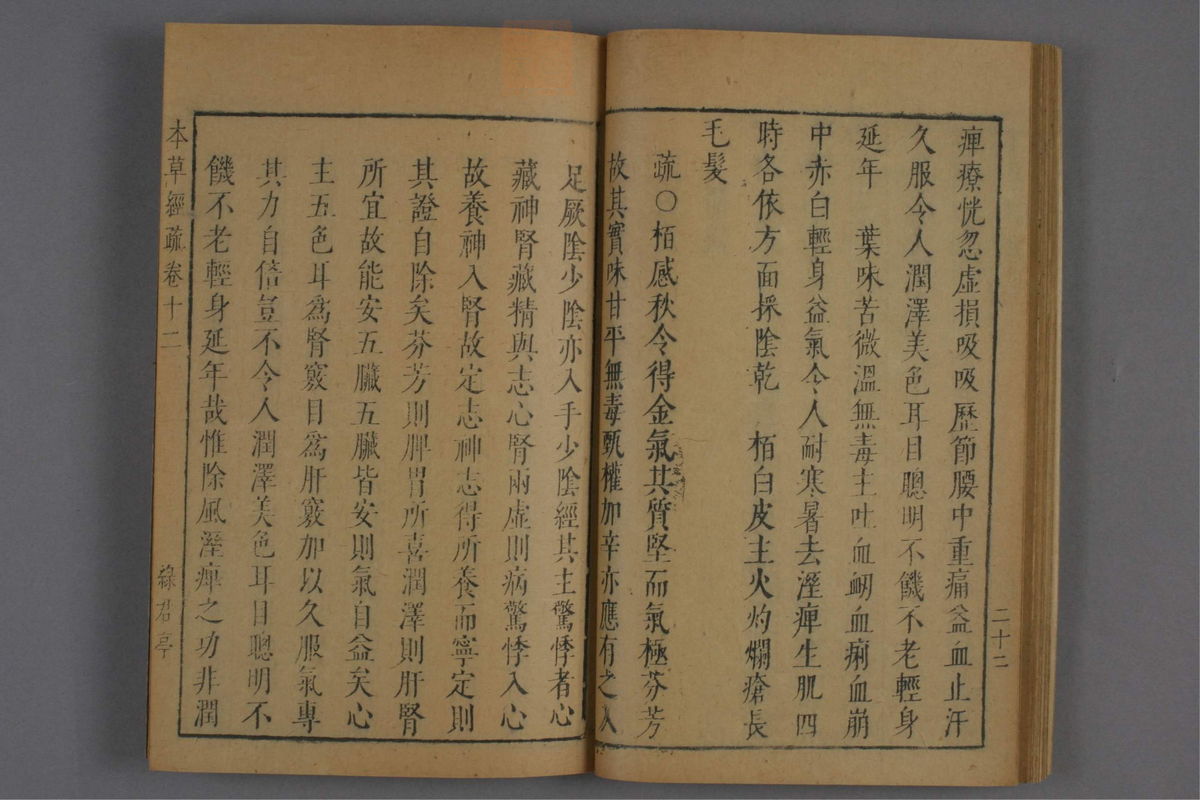 痺療恍忽虛損吸吸歷節腰中重痛益血止汗
久服令人潤澤美色耳目聰明不饑不老輕身
延年　葉味苦微溫無毒主吐血衂血痢血崩
中赤白輕身益氣令人耐寒暑去溼痺生肌四
時各依方面採陰乾　栢白皮主火灼爛瘡長
毛髮
疏〇栢感秋令得金氣其質堅而氣極芬芳
故其實味甘平無毒甄權加辛亦應有之入
二十二
足厥陰少陰亦入手少陰經其主驚悸者心
藏神腎藏精與志心腎兩虛則病驚悸入心
故養神入腎故定志神志得所養而寧定則
其證自除矣芬芳則脾胃所喜潤澤則肝腎
所宜故能安五臟五臟皆安則氣自益矣心
主五色耳爲腎竅目爲肝竅加以久服氣專
其力自倍豈不令人潤澤美色耳目聰明不
饑不老輕身延年哉惟除風溼痺之功非潤
本草經疏卷十二
綠君亭